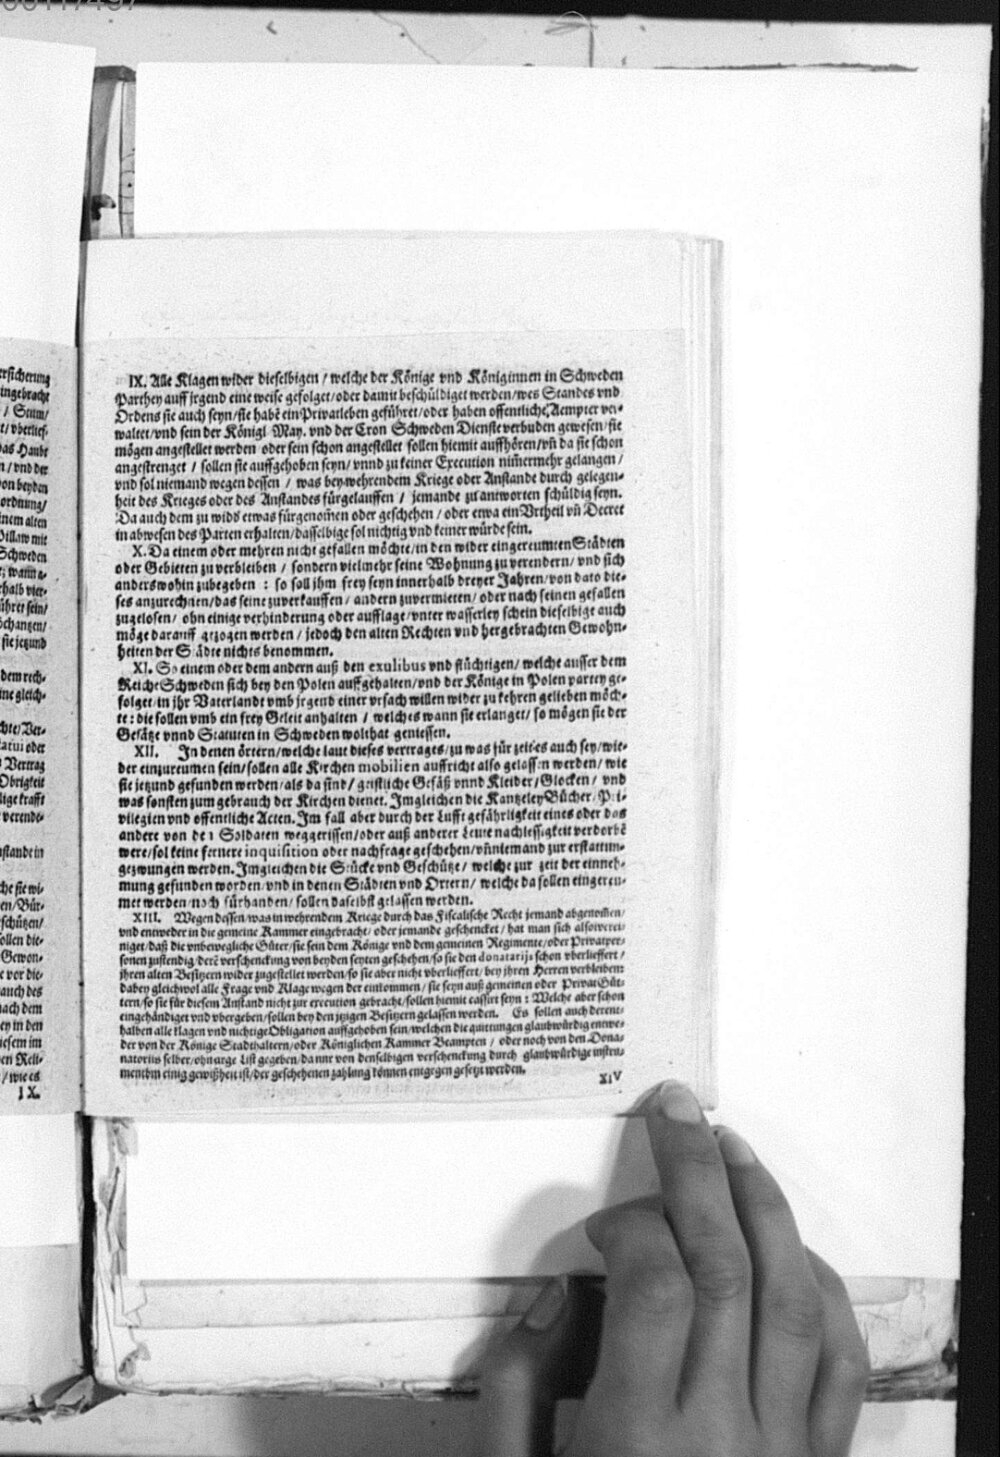 IX. Alle Klagen wider dieselbigen / welche der Könige vnd Königinnen in Schweden
Parthey auff jrgend eine weise gefolget/oder damit beschüldiget werden/wes Standes vnd
Ordens sie auch seyn/sie habē ein Privatleben geführet/oder haben offentliche Aempter ver-
waltet/vnd sein der Königl May. vnd der Cron Schweden Dienste verbuden gewesen/sie
mögen angestellet werden oder sein schon angestellet sollen hiemit auffhören/vn̄ da sie schon
angestrenget / sollen sie auffgehoben seyn/vnnd zu keiner Execution nim̄ermehr gelangen /
vnd sol niemand wegen dessen / was bey wehrendem Kriege oder Anstande durch gelegen-
heit des Krieges oder des Anstandes fürgelauffen / jemande zu antworten schüldig seyn.
Da auch dem zu widd etwas fürgenom̄en oder geschehen / oder etwa ein Vrtheil vn̄ Decret
in abwesen des Parten erhalten/dasselbige sol nichtig vnd keiner würde sein.
X. Da einem oder mehren nicht gefallen möchte/in den wider eingereumten Städten
oder Gebieten zu verbleiben / sondern vielmehr seine Wohnung zu verendern/ vnd sich
anderswohin zubegeben : so soll jhm frey seyn innerhalb dreyer Jahren/von dato die-
ses anzurechnen/das seine zuverkauffen / andern zuvermieten/ oder nach seinen gefallen
zugelosen/ ohn einige verhinderung oder aufflage/vnter wasserley schein dieselbige auch
möge darauff gezogen werden / jedoch den alten Rechten vnd hergebrachten Gewohn-
heiten der Städte nichts benommen.
XI. So einem oder dem andern auß den exulibus vnd flüchtigen/ welche ausser dem
Reiche Schweden sich bey den Polen auffgehalten/vnd der Könige in Polen partey ge-
folget/in jhr Vaterlandt vmb jrgend einer vrsach willen wider zu kehren gelieben möch-
te : die sollen vmb ein frey Geleit anhalten / welches wann sie erlanget/ so mögen sie der
Gesätze vnnd Statuten in Schweden wolthat geniessen.
XII. In denen örtern/welche laut dieses vertrages/zu was für zeit es auch sey/wie-
der einzureumen sein/sollen alle Kirchen mobilien auffricht also gelassen werden/ wie
sie jetzund gefunden werden/als da sind/ geistliche Gefäß vnnd Kleider/Glocken/ vnd
was sonsten zum gebrauch der Kirchen dienet. Jmgleichen die Kantzeley Bücher/Pri-
vilegien vnd offentliche Acten. Jm fall aber durch der Lufft gefährligkeit eines oder das
andere von den Soldaten weggerissen/oder auß anderer Leute nachlessigkeit verdorbē
were/sol keine fernere inquisition oder nachfrage geschehen/vn̄niemand zur erstattun-
gezwungen werden. Jmgleichen die Stücke vnd Geschütze/ welche zur zeit der einneh-
mung gefunden worden/vnd in denen Städten vnd Ortern/ welche da sollen eingereu-
met werden/noch fürhanden/ sollen daselbst gelassen werden.
XIII. Wegen dessen/was in wehrendem Kriege durch das Fiscalische Recht jemand abgenom̄en/
vnd entweder in die gemeine Kammer eingebracht/ oder jemande geschencket/ hat man sich also verei-
niget/daß die vnbewegliche Güter/sie sein dem Könige vnd dem gemeinen Regimente/oder Privatper-
sonen zustendig/derē verschenckung von beyden seyten geschehen/so sie den donatarijs schon vberlieffert/
jhren alten Besitzern wider zugestellet werden/so sie aber nicht vberlieffert/ bey jhren Herren verbleiben:
dabey gleichwol alle Frage vnd Klage wegen der einkommen/ sie seyn auß gemeinen oder Privat Güt-
tern/so sie für diesem Anstand nicht zur execution gebracht/sollen hiemit cassirt seyn : Welche aber schon
eingehändiget vnd vbergeben/sollen bey den jtzigen Besitzern gelassen werden. Es sollen auch derent-
halben alle klagen vnd nichtige Obligation auffgehoben sein/welchen die quittungen glaubwürdig entwe-
der von der Könige Stadthaltern/oder Königlichen Kammer Beampten / oder noch von den Dona-
natoriis selber/ohn arge list gegeben/da nur von denselbigen verschenckung durch glaubwürdige instru-
mentbm einig gewißheit ist/der geschehenen zahlung können entgegen gesetzt werden.
XIV
ersicherung
ingebracht
/ Stum/
t/ vberlief-
das Haubt
n / vnd der
von beyden
ordnung/
inem alten
Pillaw mit
Schweden
rhalb vier-
ühret sein/
öchantzen/
sie jetzund
dem rech-
ine gleich-
chte/ Ver-
tatui oder
Vertrag
Obrigkeit
lige krafft
verende-
nstande in
che sie wi-
en/ Bür-
schützen/
ollen die-
Gewon-
e vor die-
auch des
nach dem
ey in den
iesem im
en Reli-
/ wie es
IX.